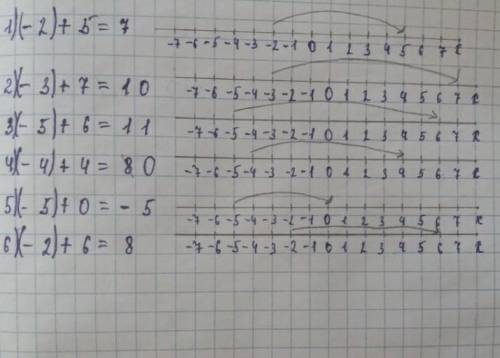 1)(-2)+5=7 -7 -6 -5 -4 -3 -2 -1 0 1 2 3 4 5 6 7 8
2)(-3)+7=10 -7 -6 -5 -4 -3 -2 -1 0 1 2 3 4 5 6 7 8
3)(-5)+6=11 -7 -6 -5 -4 -3 -2 -1 0 1 2 3 4 5 6 7 8
4)(-4)+4=80 -7 -6 -5 -4 -3 -2 -1 0 1 2 3 4 5 6 7 8
5)(-5)+0=-5 -7 -6 -5 -4 -3 -2 -1 0 1 2 3 4 5 6 7 8
6)(-2)+6=8 -7 -6 -5 -4 -3 -2 -1 0 1 2 3 4 5 6 7 8